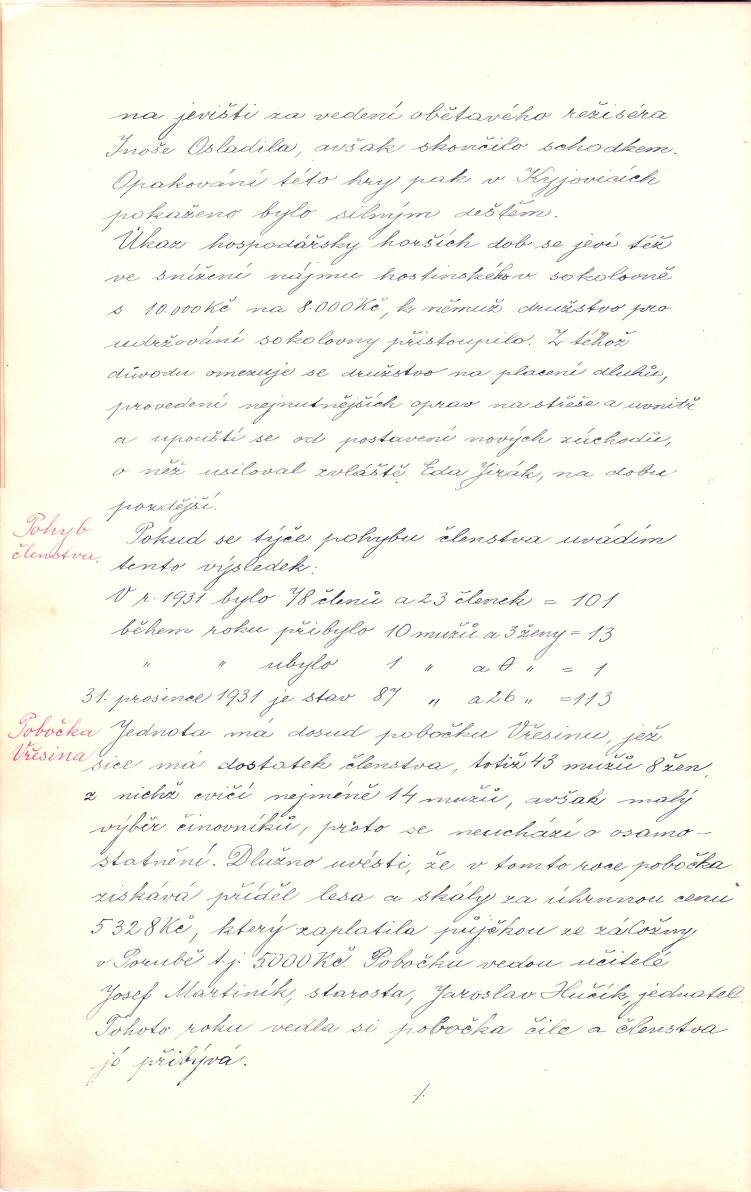 na jevišti za vedení obětavého režiséra
Inoše Osladila, avšak skončilo schodkem.
Opakování této hry pak v Kyjovicích
pokaženo bylo silným deštěm.
Úkaz hospodářsky horších dob se jeví též
ve snížení nájmu hostinského v sokolovně
s 10.000 Kč na 8.000 Kč, k němuž družstvo pro
udržování sokolovny přistoupilo. Z téhož
důvodu omezuje se družstvo na placení dluhů,
provedení nejnutnějších oprav na střeše a uvnitř
a upouští se od postavení nových záchodů,
o něž usiloval zvláště Eda Jirák, na dobu
pozdější.
Pohyb
členstva.
Pokud se týče pohybu členstva uvádím
tento výsledek:
V r. 1931 bylo 78 členů a 23 členek = 101
během roku přibylo 10 mužů a 3 ženy = 13
" " ubylo 1 " a 0 " = 1
31. prosince 1931 je stav 87 " a 26 " = 113
Pobočka
Vřesina
Jednota má dosud pobočku Vřesinu, jež
sice má dostatek členstva, totiž 43 mužů 8 žen,
z nichž cvičí nejméně 14 mužů, avšak malý
výběr činovníků, proto se neuchází o osamo-
statnění. Dlužno uvésti, že v tomto roce pobočka
získává příděl lesa a skály za úhrnnou cenu
5328 Kč, který zaplatila půjčkou ze záložny
v Porubě t.j. 5000 Kč. Pobočku vedou učitelé
Josef Martiník, starosta, Jaroslav Hučík, jednatel.
Tohoto roku vedla si pobočka čile a členstva
jí přibývá.
./.